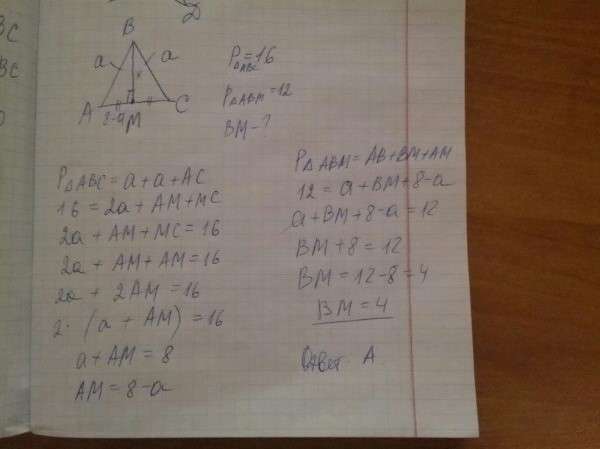 D
BC
BC
B
a a
x
A C
8-a M
P△ABC = 16
P△ABM = 12
BM - ?
P△ABC = a + a + AC
16 = 2a + AM + MC
2a + AM + MC = 16
2a + AM + AM = 16
2a + 2AM = 16
2 · (a + AM) = 16
a + AM = 8
AM = 8 - a
P△ABM = AB + BM + AM
12 = a + BM + 8 - a
a + BM + 8 - a = 12
BM + 8 = 12
BM = 12 - 8 = 4
BM = 4
Ответ A